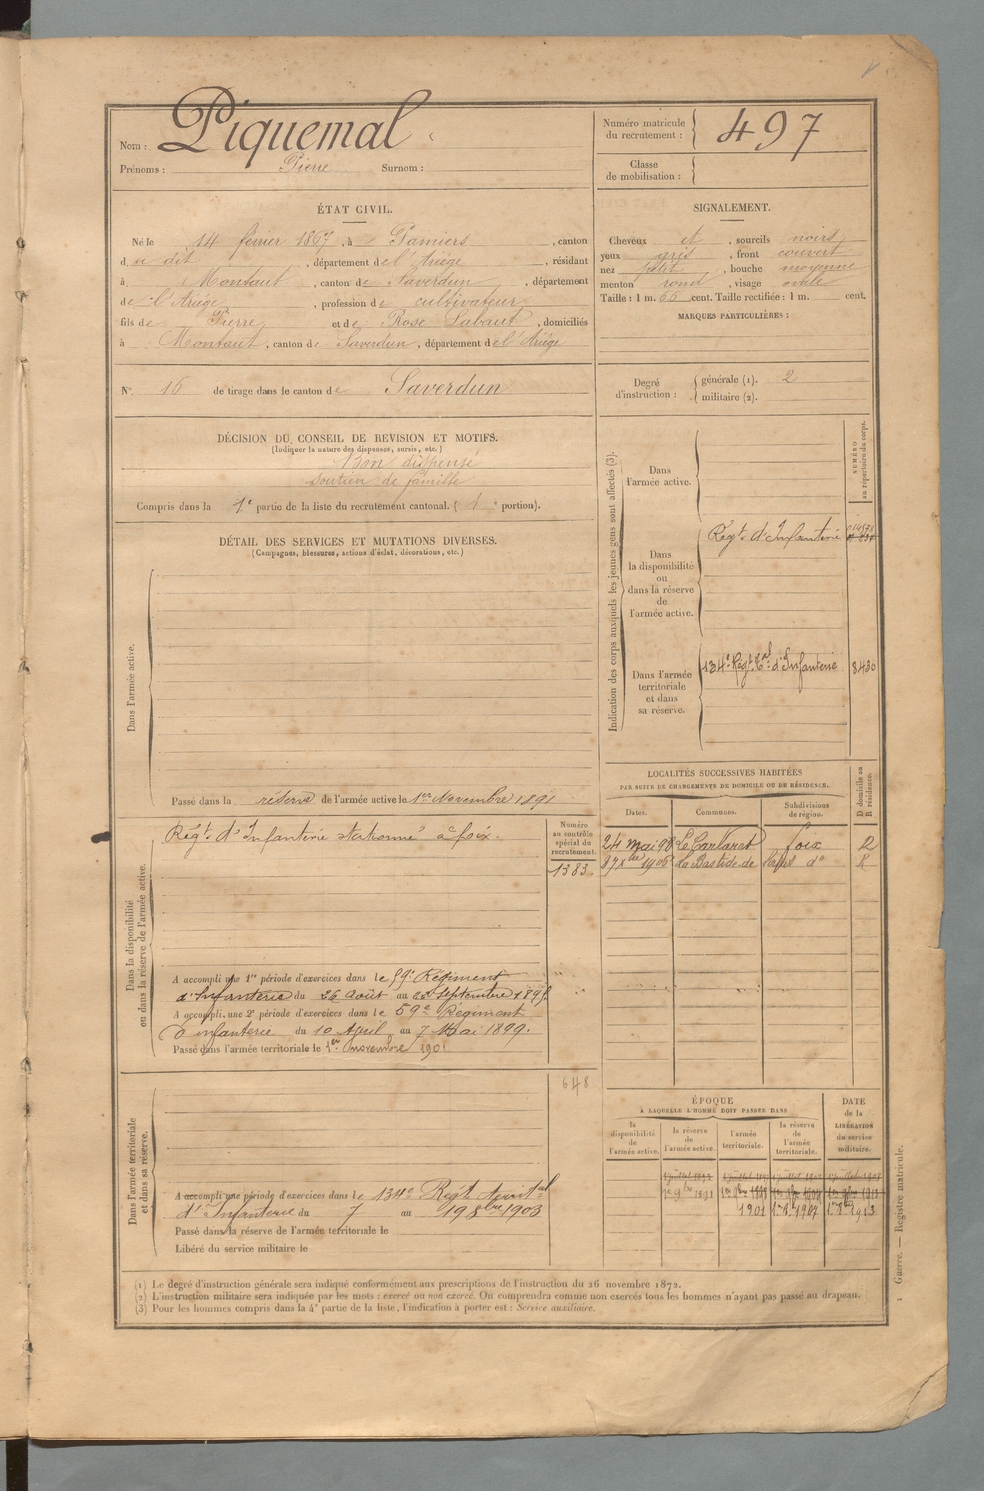 Nom : Piquemal
Prénoms : Pierre Surnom :
Numéro matricule du recrutement : 497
Classe de mobilisation :
ÉTAT CIVIL.
Né le 14 février 1867, à Pamiers, canton
d u dit, département de l'Ariège, résidant
à Montaut, canton de Saverdun, département
de l'Ariège, profession de cultivateur
fils de Pierre et de Rose Labaut, domiciliés
à Montaut, canton de Saverdun, département de l'Ariège
N° 16 de tirage dans le canton de Saverdun
SIGNALEMENT.
Cheveux et, sourcils noirs
yeux gris, front couvert
nez petit, bouche moyenne
menton rond, visage ovale
Taille : 1 m. 66 cent. Taille rectifiée : 1 m. cent.
MARQUES PARTICULIÈRES :
Degré d'instruction :
générale (1). 2
militaire (2).
DÉCISION DU CONSEIL DE REVISION ET MOTIFS.
(Indiquer la nature des dispenses, sursis, etc.)
Bon dispensé
soutien de famille
Compris dans la 1e partie de la liste du recrutement cantonal. ( 1e portion).
DÉTAIL DES SERVICES ET MUTATIONS DIVERSES.
(Campagnes, blessures, actions d'éclat, décorations, etc.)
Dans l'armée active.
Passé dans la réserve de l'armée active le 1er Novembre 1891
Dans la disponibilité ou dans la réserve de l'armée active.
Régt d'Infanterie stationné à foix.
Numéro au contrôle spécial du recrutement.
1383.
A accompli une 1re période d'exercices dans le 59e Régiment
d'Infanterie du 26 Août au septembre
A accompli une 2e période d'exercices dans le 59e Régiment
d'infanterie du 10 Avril au 7 Mai 1899.
Passé dans l'armée territoriale le 1er novembre 1901
648
Dans l'armée territoriale et dans sa réserve.
A accompli une période d'exercices dans le 134e Régt territal
d'Infanterie du 7 au 19 8bre 1903
Passé dans la réserve de l'armée territoriale le
Libéré du service militaire le
Indication des corps auxquels les jeunes gens sont affectés (3).
NUMÉRO au répertoire du corps.
Dans l'armée active.
Dans la disponibilité ou dans la réserve de l'armée active.
Régt d'Infanterie
Dans l'armée territoriale et dans sa réserve.
134e Régt tal d'Infanterie 8430
LOCALITÉS SUCCESSIVES HABITÉES
PAR SUITE DE CHANGEMENTS DE DOMICILE OU DE RÉSIDENCE.
Dates. Communes. Subdivisions de région. D domicile ou R résidence.
24 Mai 98 Le Carlaret foix D
1906 La Bastide de Lordat do R
ÉPOQUE
A LAQUELLE L'HOMME DOIT PASSER DANS
la disponibilité de l'armée active. la réserve de l'armée active. l'armée territoriale. la réserve de l'armée territoriale. DATE de la LIBÉRATION du service militaire.
1er 9bre 1891
1901 1er 9bre 1907 1er 9bre 1913
(1) Le degré d'instruction générale sera indiqué conformément aux prescriptions de l'instruction du 26 novembre 1872.
(2) L'instruction militaire sera indiquée par les mots : exercé ou non exercé. On comprendra comme non exercés tous les hommes n'ayant pas passé au drapeau.
(3) Pour les hommes compris dans la 4e partie de la liste, l'indication à porter est : Service auxiliaire.
1 Guerre. — Registre matricule.